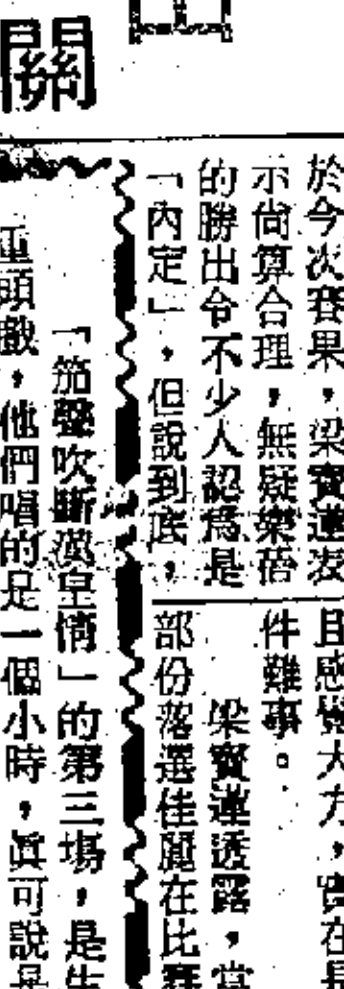 關
於今次賽果，梁寶蓮表
示尚算合理，無疑樂蓓
的勝出令不少人認爲是
「內定」，但說到底，
且感覺大方，實在是
件難事。
梁寶蓮透露，當
部份落選佳麗在比賽
「笳聲吹斷漢皇情」的第三場，是生
重頭戲，他們唱的是一個小時，眞可說是